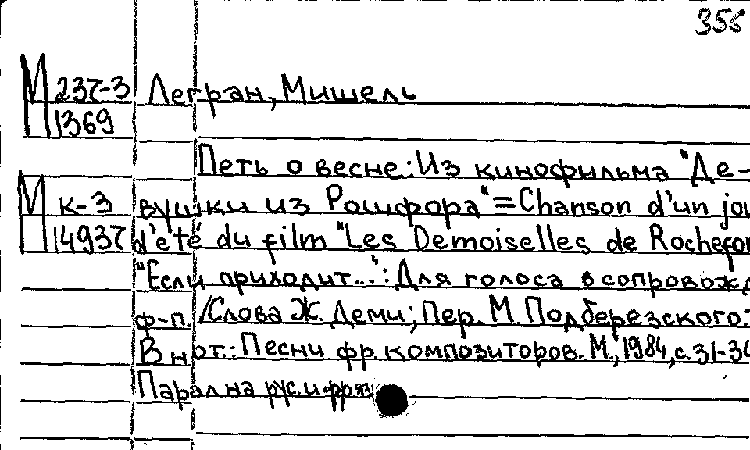 355
М 237-3 Легран, Мишель
1369
Петь о весне: Из кинофильма "Де-
М к-3 вушки из Рошфора" = Chanson d'un jou
14937 d'été du film "Les Demoiselles de Rochefor
"Если приходит...": Для голоса в сопровожд
ф-п. /Слова Ж. Деми; Пер. М. Подберезского.
В нот.: Песни фр. композиторов. М., 1984, с. 31-36
Парал. на рус. и фр. яз.